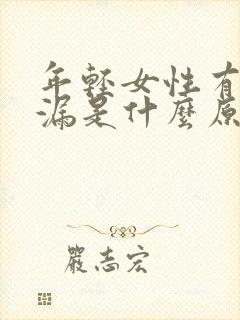 年輕女性有
漏是什麼原
嚴志宏